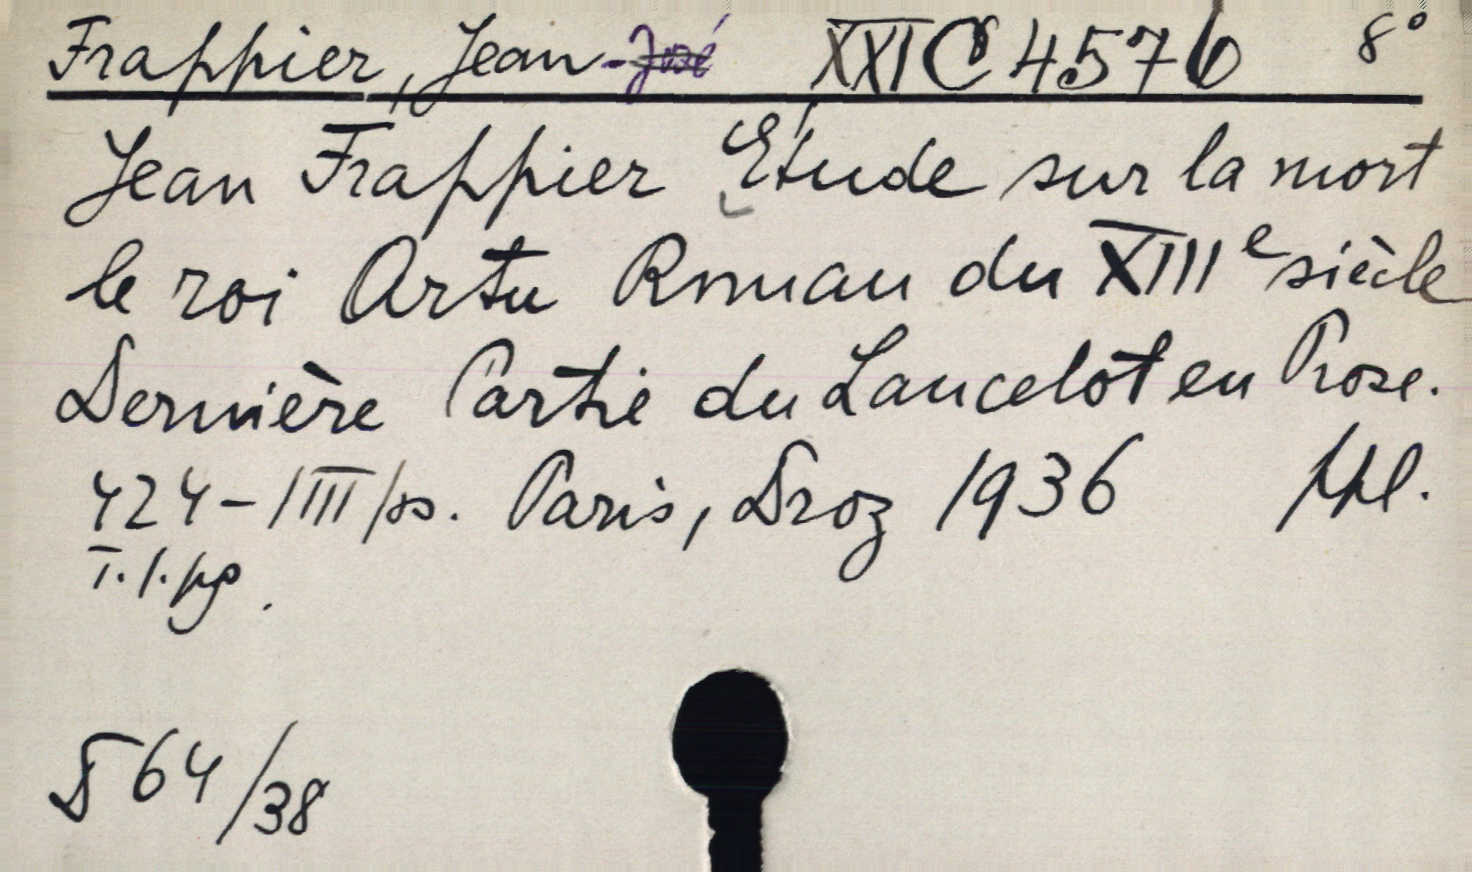 Frappier, Jean-José XXI C 4576 8°
Jean Frappier Etude sur la mort
le roi Artu Roman du XIIIe siècle
Dernière Partie du Lancelot en Prose.
424-|III| ss. Paris, Droz 1936
T.1.pg.
D 64/38